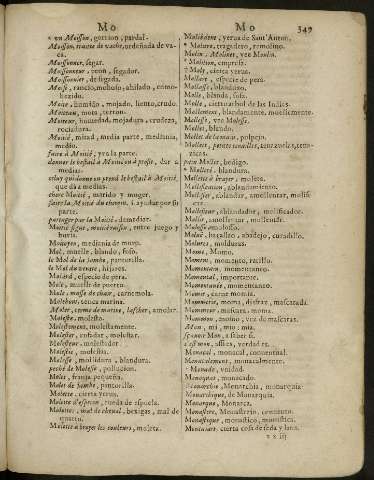 Mo
Mo 349
* un Moisson, gorrion, pardal.
Moisson, traitte de vache, ordeñada de va-
ca.
Moissonner, segar.
Moissonneur, peon, segador.
Moissonnier, de segada.
Moisi, rancio, mohoso, ahilado, enmo-
hezido.
Moite, humido, mojado, liento, crudo.
Moiteur, humedad, mojadura, crudeza,
rociadura.
Moitié, mitad, media parte, mediania,
medio.
faire à Moitié, yr a la parte.
donner le bestail à Moitié, dar a
medias.
celuy qui donne ou prend le bestail à Moitié,
que dà a medias.
chere Moitié, marido y muger.
faire la Moitié du chemin, yr por su
parte.
partager par la Moitié, demediar.
Moitié figue, moitié raisin, entre juego y
burla.
Moitoyen, mediania de muro.
Mol, muelle, blando, foso.
le Mol de la Jambe, pantorrilla.
le Mol du ventre, hijares.
Molard, especie de pera.
Mole, muelle de puerto.
Mole, masse de chair, carnemola.
Molebout, tenca marina.
Moler, terme de marine, amolar.
Moleste, molesto.
Molestement, molestamente.
Molester, enfadar, molestar.
Molesteur, molestador.
Molestie, molestia.
Molesse, mollidura, blandura.
peché de Molesse, pollucion.
Molet, franja pequeña.
Molet de Jambe, pantorrilla.
Molette, cierta yerua.
Molette d'esperon, rueda de espuela.
Molettes, mal de cheual, bexigas, mal de
Molette à broyer les couleurs, moleta.
Moliedene, yerua de Sant'Anton.
* Moliere, tragadero, remolino.
Molin, Molinet, vee Moulin.
* Molition, empresa.
† Moly, cierta yerua.
Mollart, especie de pera.
Mollasse, blandazo.
Molle, blanda, fofa.
Molle, cierto arbol de las Indias.
Mollement, blandamente, muellemente.
Mollesse, vee Molesse.
Mollet, blando.
pain Mollet, bodigo.
* Molleté, blandura.
Mollette à broyer, moleta.
Mollification, ablandamiento.
Mollifier, ablandar, amollentar, molifi-
car.
Mollifieur, ablandador, molificador.
Mollir, amollentar, mollescer.
Moluë, bacallao, abadejo, curadillo.
Molures, molduras.
Mome, Momo.
Moment, momento, rarillo.
Momentain, momentaneo.
Momental, importante.
Momentanée, momentaneo.
Momie, carne momia.
Mommerie, moma, disfraz, mascarada.
Mommeur, mascara, moma.
Mommon, momo, voz de mascaras.
Mon, mi, mio, mia.
sçauoir Mon, a saber si.
c'est mon, assi es, verdad es.
Monacal, monacal, conuentual.
Monacalement, monacalmente.
Monade, vnidad.
Monaquat, monacado.
Monarchie, Monarchia, monarquia
Monarchique, de Monarca.
Monarque, Monarca.
Monastere, Monasterio, conuento.
Monastique, monastico, monastica.
Moncaiart, cierta cosa de seda y lana.
x x iij